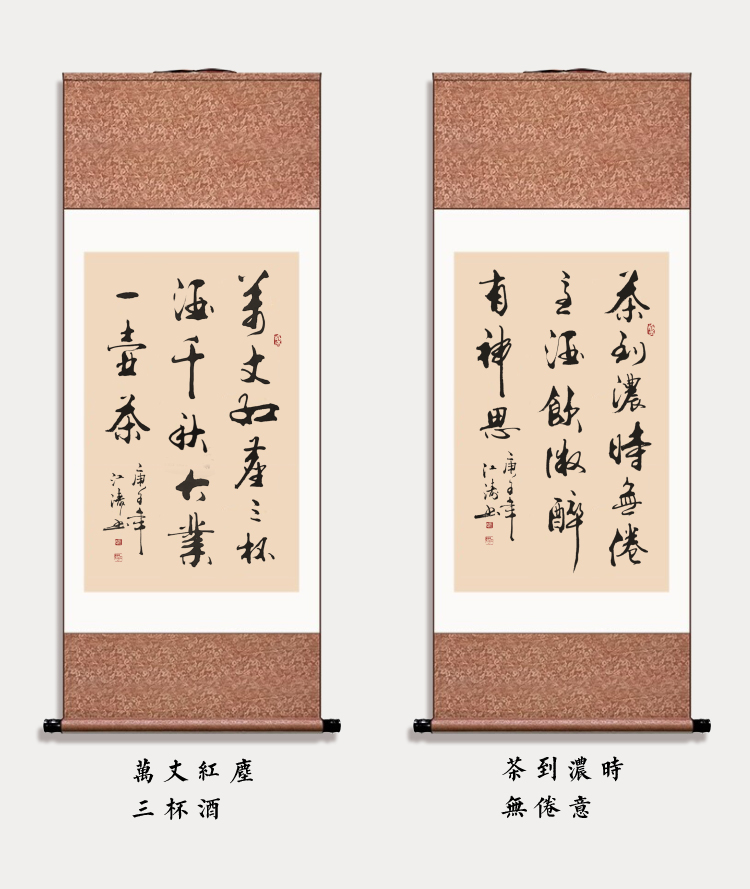 萬丈紅塵三杯
酒千秋大業
一壺茶
庚子年
江濤書
茶到濃時無倦
意酒飲微醉
有神思
庚子年
江濤書
萬丈紅塵
三杯酒
茶到濃時
無倦意